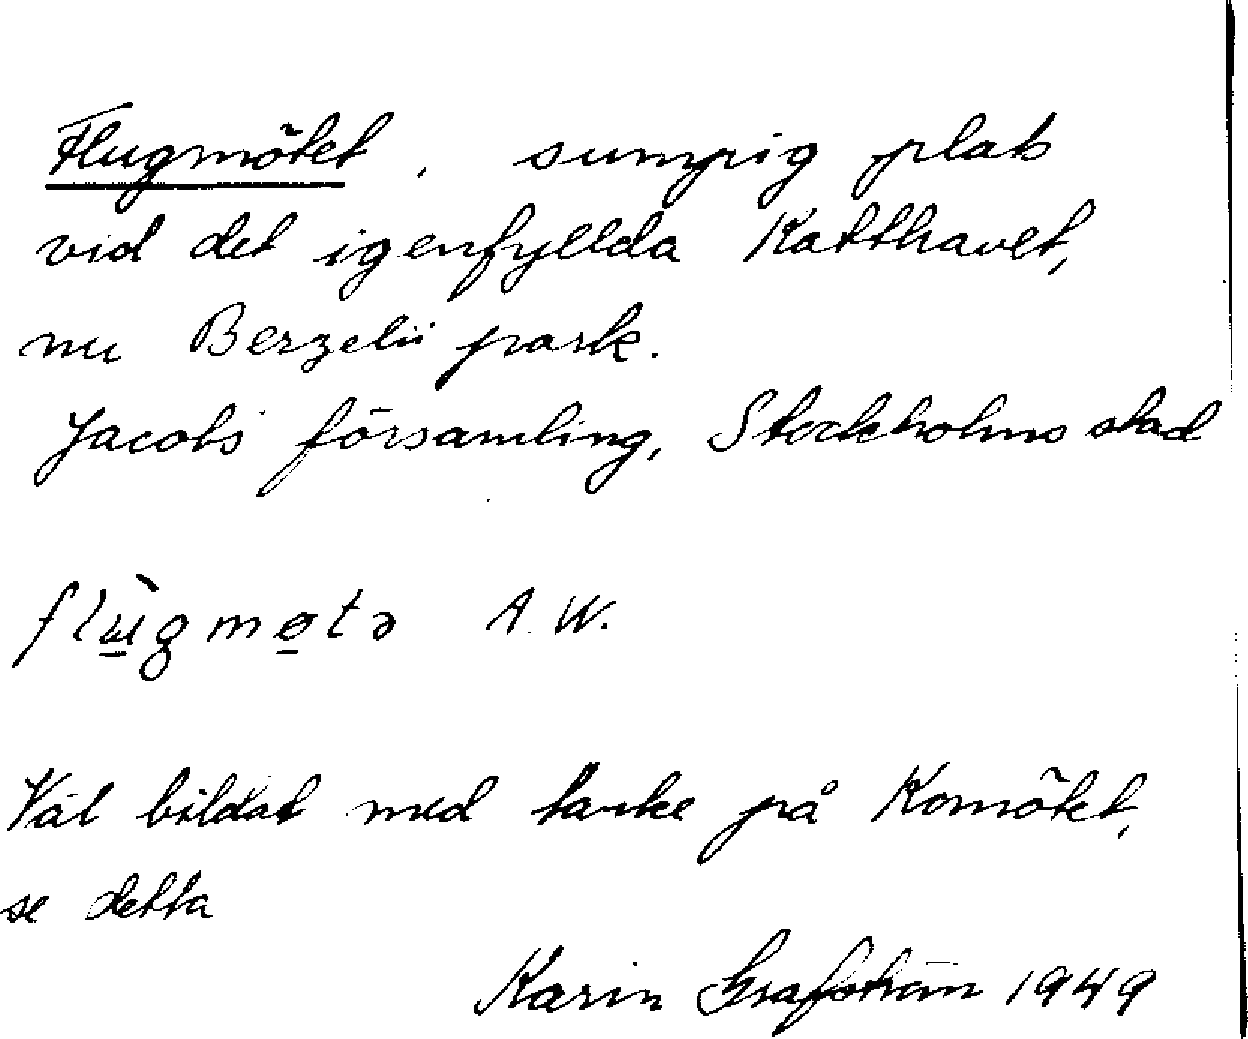 Flugmötet, sumpig plats
vid det igenfyllda Katthavet,
nu Berzelii park.
Jacobs församling, Stockholms stad
flùgmøtə A. W.
Väl bildat med tanke på Komötet,
se detta
Karin Grafström 1949